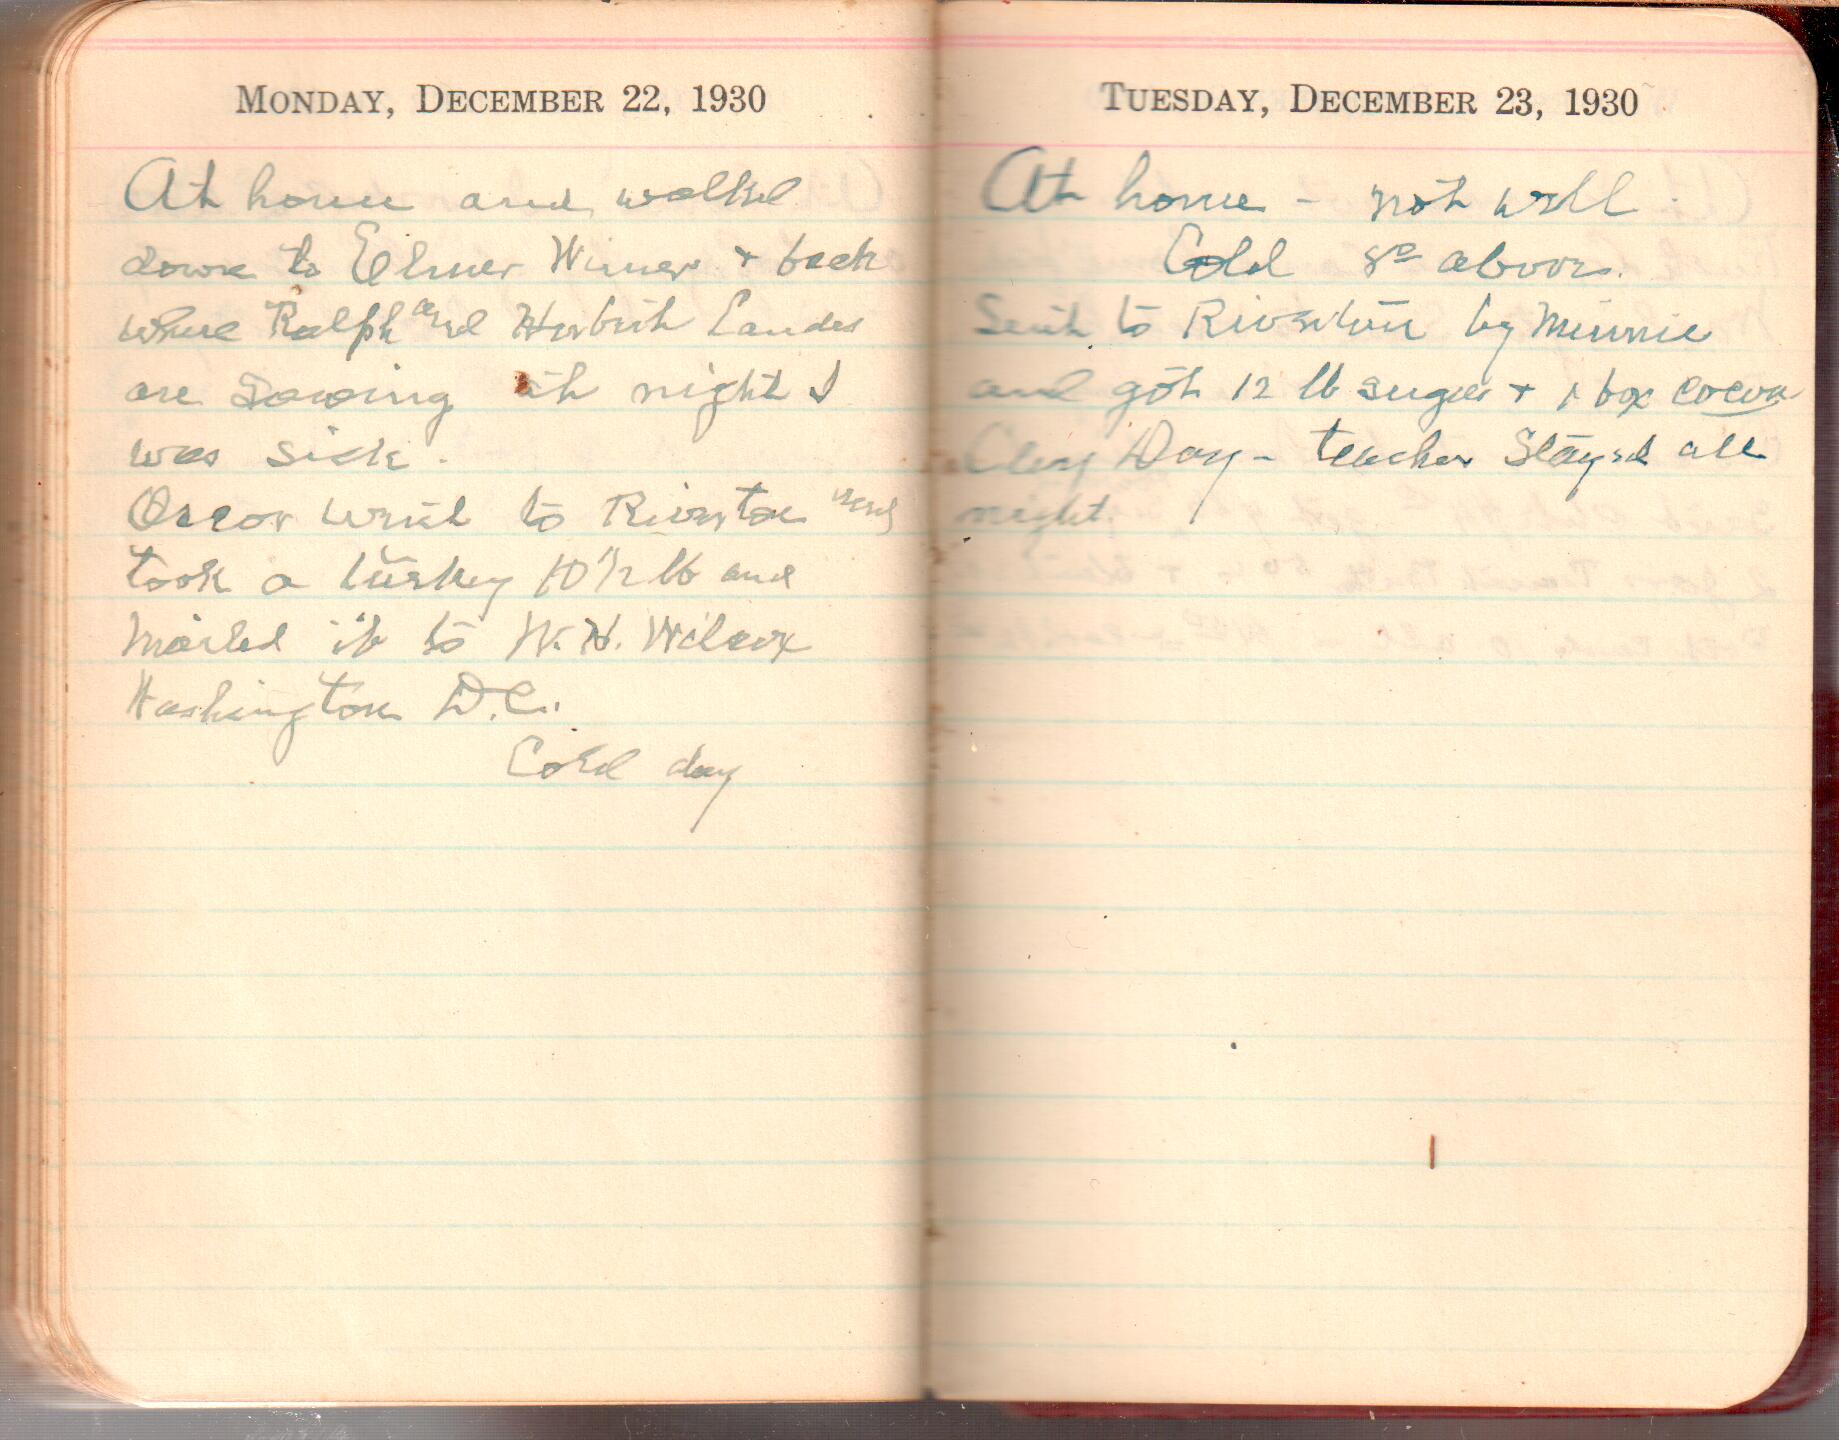 MONDAY, DECEMBER 22, 1930
At home and walked
down to Elmer Wimer + back
where Ralph and Herbert Landes
are sawing at night I
was sick.
Oscar went to Riverton and
took a turkey 10 1/2 lb and
mailed it to W. H. Wilcox
Washington D.C.
Cold day
TUESDAY, DECEMBER 23, 1930
At home - not well.
Cold 8° above.
Sent to Riverton by Minnie
and got 12 lb sugar + 1 box cocoa
Clay Day - teacher stayed all
night.